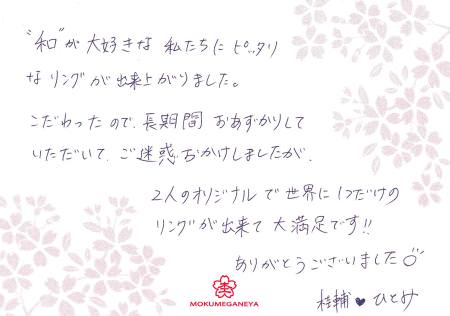 "和"が大好きな私たちにピッタリ
なリングが出来上がりました。
こだわったので、長期間おあずかりして
いただいて、ご迷惑おかけしましたが、
2人のオリジナルで世界に1つだけの
リングが出来て大満足です!!
ありがとうございました
桂輔♥ひとみ
MOKUMEGANEYA